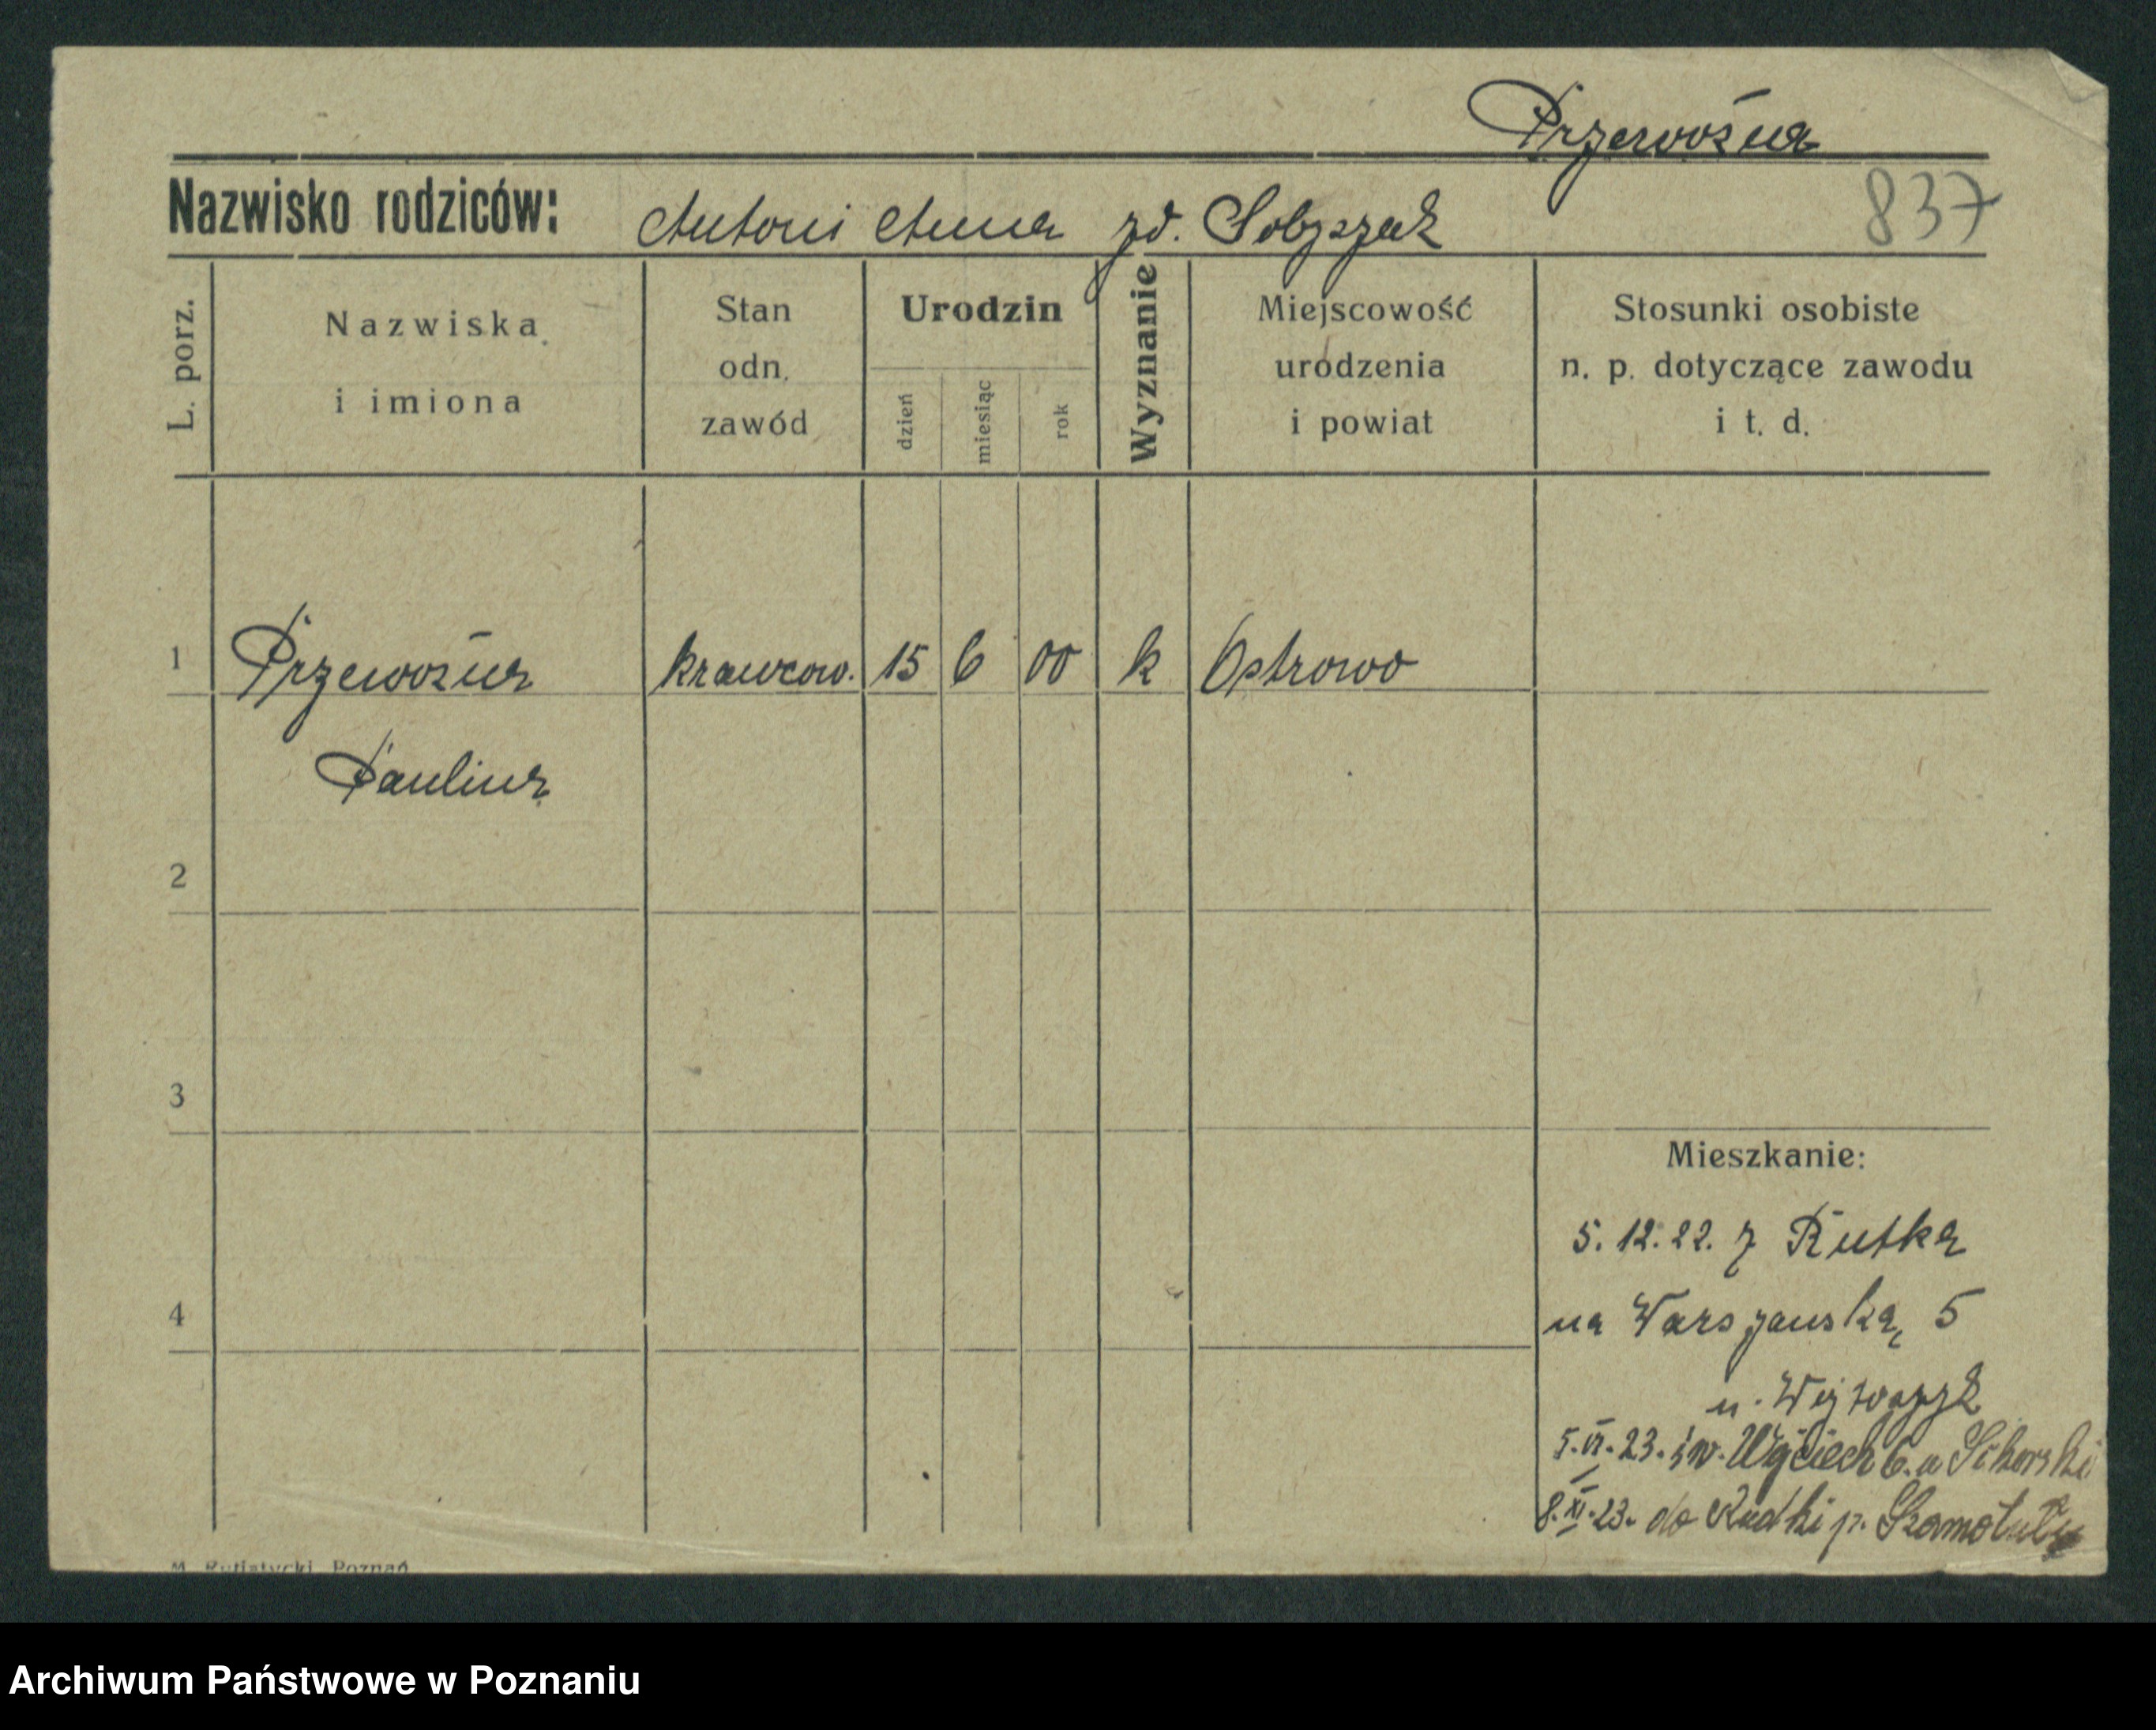 Przewoźna
Nazwisko rodziców: Antoni Anna zd. Sobczak
837
L. porz.
Nazwiska i imiona
Stan odn. zawód
Urodzin
dzień
miesiąc
rok
Wyznanie
Miejscowość urodzenia i powiat
Stosunki osobiste n. p. dotyczące zawodu i t. d.
1 Przewoźna krawcow. 15 6 00 k Ostrowo
Paulina
2
3
4
Mieszkanie:
5. 12. 22. z Rutka
na Warszawską 5
u.
5. VI. 23. św. Wojciech 6. u Sikorski
8. XI. 23. do Rudki p. Szamotuły
Poznań
Archiwum Państwowe w Poznaniu